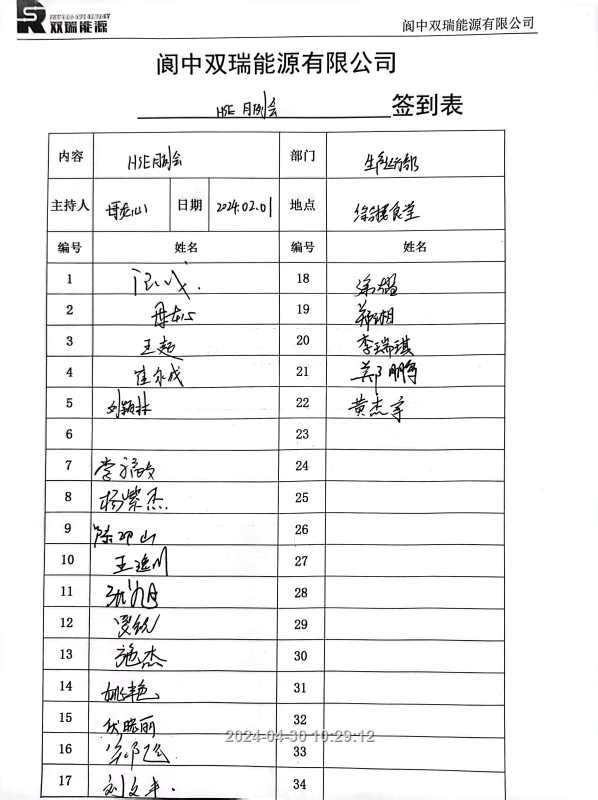 双瑞能源
阆中双瑞能源有限公司
阆中双瑞能源有限公司
HSE 月例会 签到表
内容 HSE月例会 部门 生产运行部
主持人 母龙山 日期 2024.02.01 地点 综合楼食堂
编号 姓名 编号 姓名
1 18
2 19 郑湘
3 王超 20 李瑞琪
4 21 郑鹏
5 刘颖林 22 黄杰宇
6 23
7 24
8 杨紫杰 25
9 26
10 王逸川 27
11 28
12 29
13 施杰 30
14 姚艳 31
15 伏晓丽 32
2024-04-30 10:29:12
16 33
17 刘文丰 34